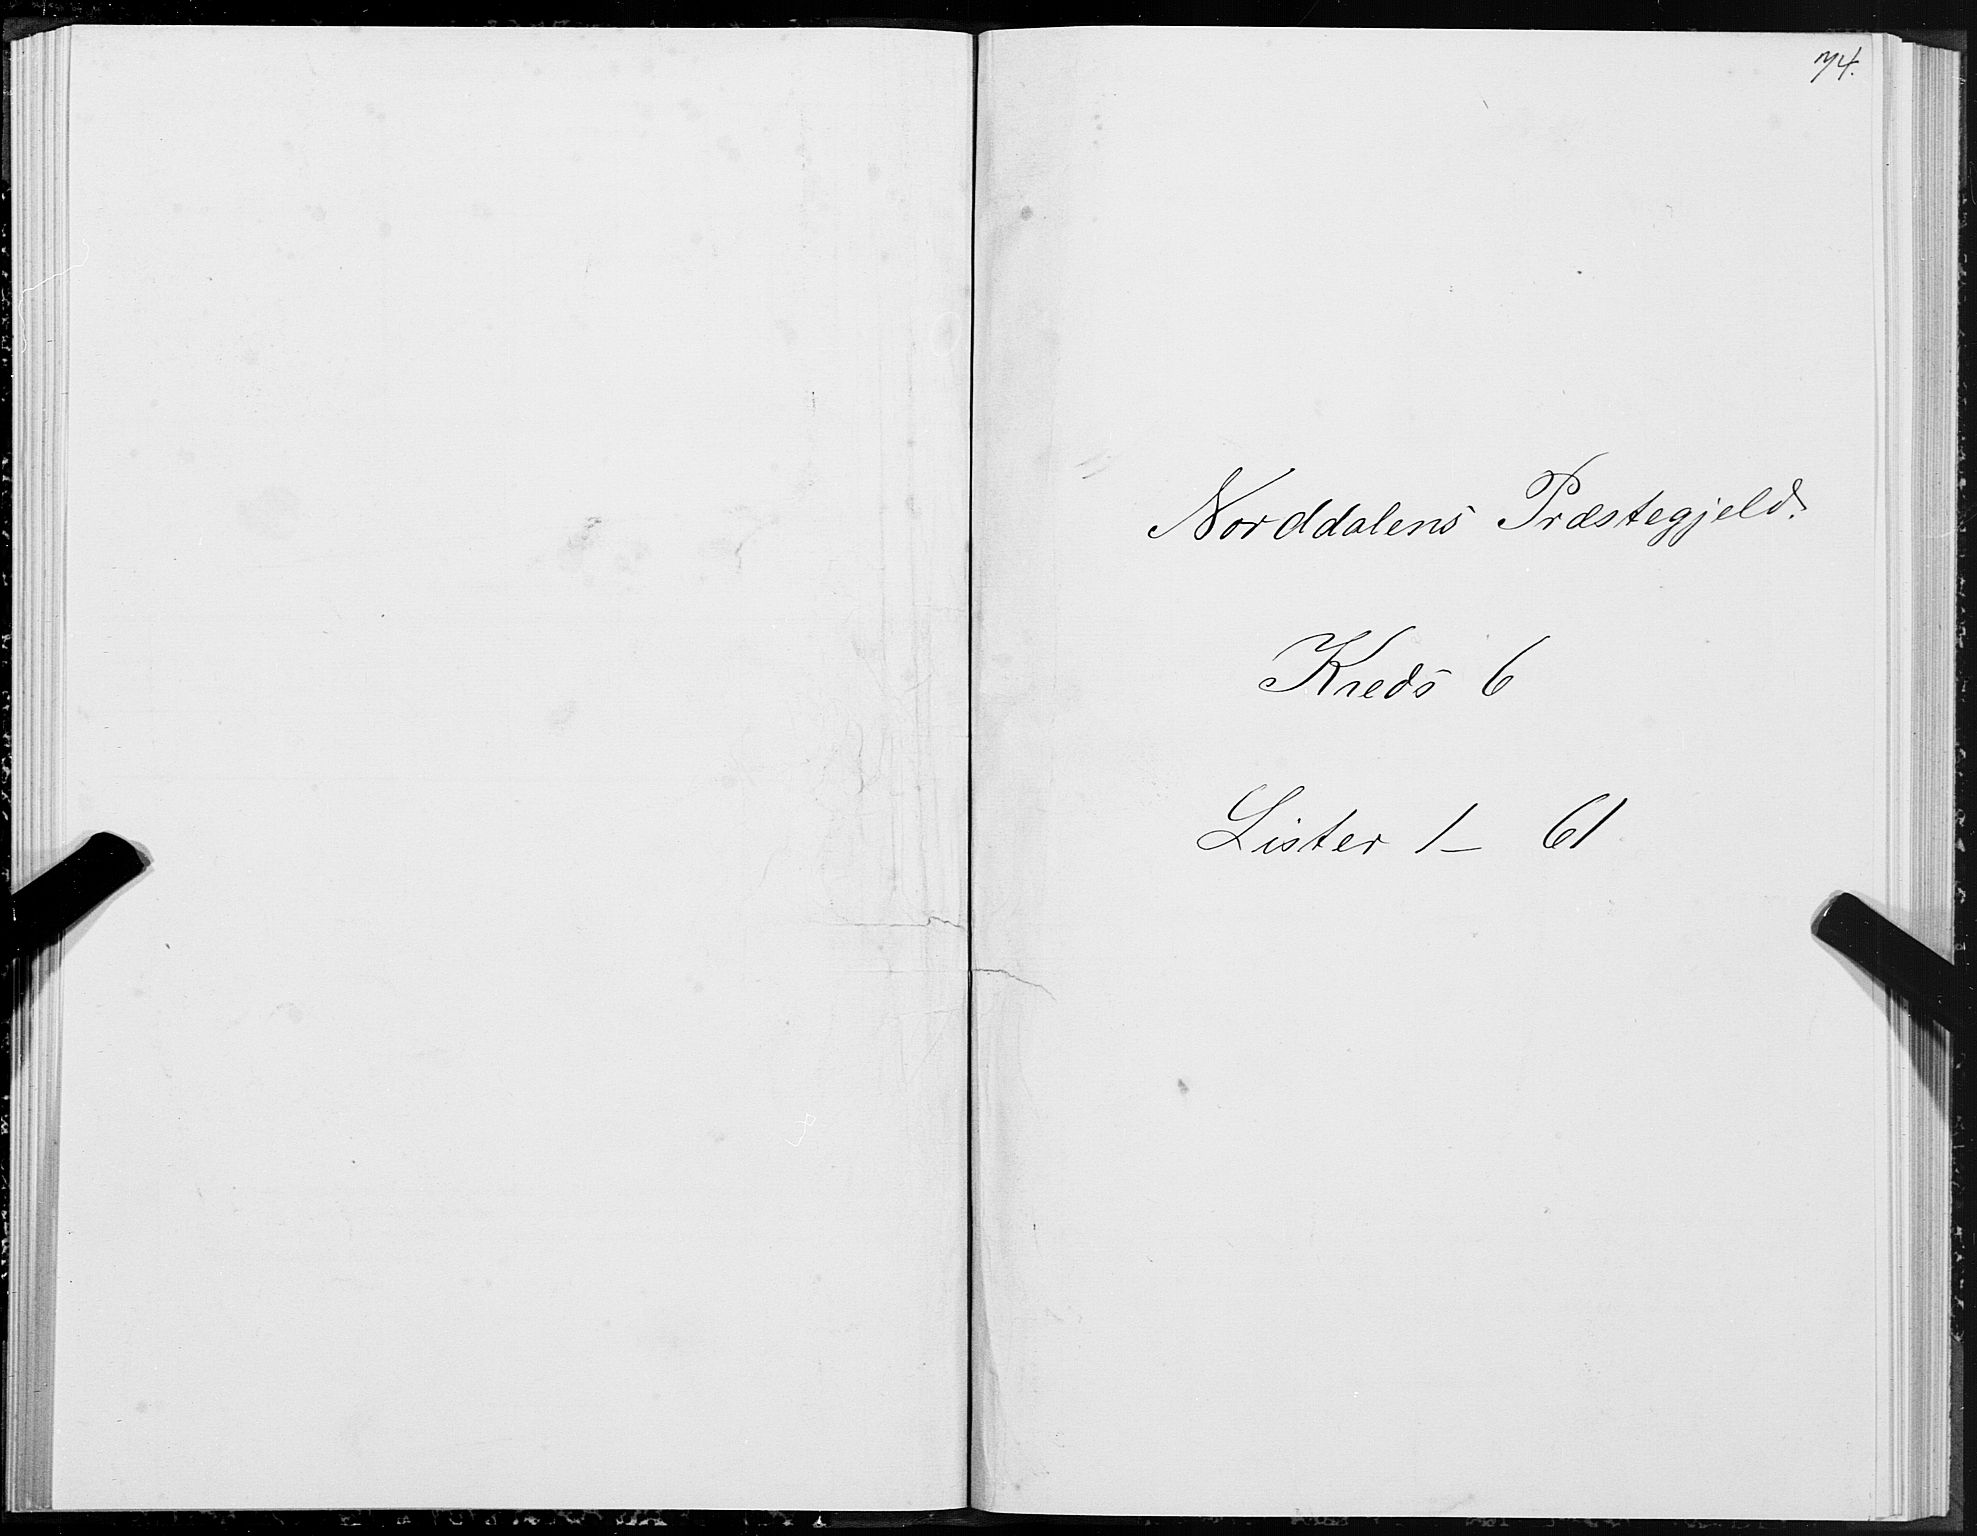 74.
Norddalens Præstegjeld.
Kreds 6
Lister 1 – 61